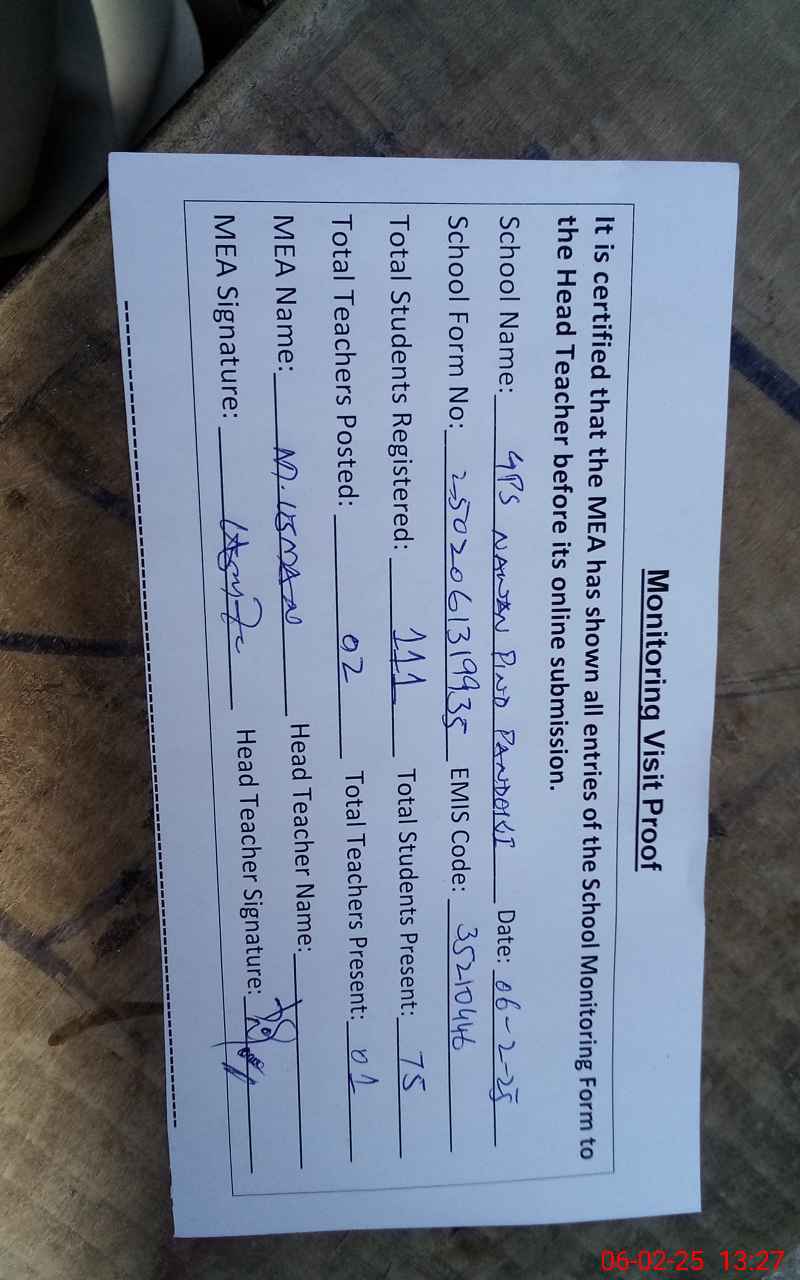 Monitoring Visit Proof
It is certified that the MEA has shown all entries of the School Monitoring Form to
the Head Teacher before its online submission.
School Name: GPS NAWAN PIND PANDOKI Date: 06-2-25
School Form No: 2502061319935 EMIS Code: 35210446
Total Students Registered: 111 Total Students Present: 75
Total Teachers Posted: 02 Total Teachers Present: 01
MEA Name: M. USMAN Head Teacher Name:
MEA Signature: Head Teacher Signature:
06-02-25 13:27